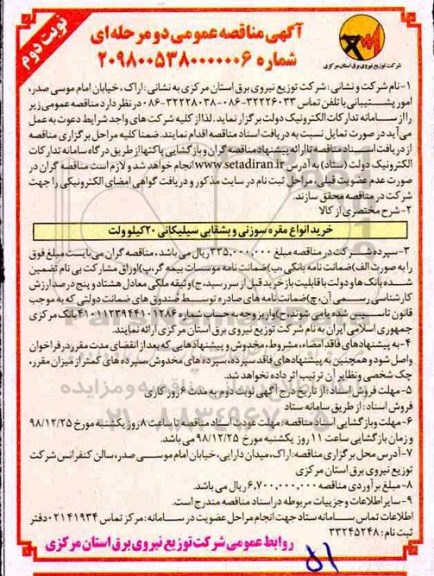 نوبت دوم
آگهی مناقصه عمومی دو مرحله ای
شماره ۲۰۹۸۰۰۵۳۸۰۰۰۰۰۰۶
شرکت توزیع نیروی برق استان مرکزی
۱-نام شرکت و نشانی : شرکت توزیع نیروی برق استان مرکزی به نشانی : اراک ، خیابان امام موسی صدر،
امور پشتیبانی با تلفن تماس ۳۲۲۲۶۰۳۳-۰۸۶ - ۳۲۲۲۸۰۳۸-۰۸۶ در نظر دارد مناقصه عمومی زیر
را از سامانه تدارکات الکترونیک دولت برگزار نماید. لذا از کلیه شرکت های واجد شرایط دعوت به عمل
می آید در صورت تمایل نسبت به دریافت اسناد مناقصه اقدام نمایند. ضمنا کلیه مراحل برگزاری مناقصه
از دریافت اسناد مناقصه تا ارائه پیشنهاد مناقصه گران و بازگشایی پاکتها از طریق درگاه سامانه تدارکات
الکترونیک دولت (ستاد) به آدرس www.setadiran.ir انجام خواهد شد و لازم است مناقصه گران در
صورت عدم عضویت قبلی، مراحل ثبت نام در سایت مذکور و دریافت گواهی امضای الکترونیکی را جهت
شرکت در مناقصه محقق سازند.
۲-شرح مختصری از کالا
خرید انواع مقره سوزنی و بشقابی سیلیکانی ۲۰ کیلو ولت
۳-سپرده شرکت در مناقصه مبلغ ۳۳۵,۰۰۰,۰۰۰ ریال می باشد، مناقصه گران می بایست مبلغ فوق
را به صورت الف)ضمانت نامه بانکی ،ب)ضمانت نامه موسسات بیمه گر،پ)اوراق مشارکت بی نام تضمین
شده بانک ها و دولت با قابلیت باز خرید قبل از سررسید، ج)وثیقه ملکی معادل هشتاد و پنج درصد ارزش
کارشناسی رسمی آن، چ)ضمانت نامه های صادره توسط صندوق های ضمانت دولتی که به موجب
قانون تاسیس شده یا می شوند، ح)واریز وجه به حساب شماره ۴۱۰۱۱۲۳۹۴۴۱۰۱۲۸۶ بانک مرکزی
جمهوری اسلامی ایران به نام شرکت توزیع نیروی برق استان مرکزی ارائه نمایند.
۴-به پیشنهادهای فاقد امضاء، مشروط، مخدوش و پیشنهادهایی که بعد از انقضای مدت مقرر در فراخوان
واصل شود و همچنین به پیشنهادهای فاقد سپرده، سپرده های مخدوش، سپرده های کمتر از میزان مقرر،
چک شخصی و نظایر آن ترتیب اثر داده نخواهد شد.
۵-مهلت فروش اسناد :از تاریخ درج آگهی نوبت دوم به مدت ۶ روز کاری
فروش اسناد : از طریق سامانه ستاد
۶-مهلت و بازگشایی اسناد مناقصه: مهلت عودت اسناد مناقصه تا ساعت ۸ روز یکشنبه مورخ ۹۸/۱۲/۲۵
و زمان بازگشایی ساعت ۱۱ روز یکشنبه مورخ ۹۸/۱۲/۲۵ می باشد.
۷-آدرس محل برگزاری مناقصه: اراک، میدان دارایی، خیابان امام موسی صدر، سالن کنفرانس شرکت
توزیع نیروی برق استان مرکزی
۸-مبلغ برآوردی مناقصه ۶,۷۰۰,۰۰۰,۰۰۰ ریال می باشد.
۹-سایر اطلاعات و جزییات مربوطه در اسناد مناقصه مندرج است.
اطلاعات تماس سامانه ستاد جهت انجام مراحل عضویت در سامانه : مرکز تماس ۰۲۱۴۱۹۳۴ دفتر
ثبت نام : ۳۳۲۴۵۲۴۸
روابط عمومی شرکت توزیع نیروی برق استان مرکزی